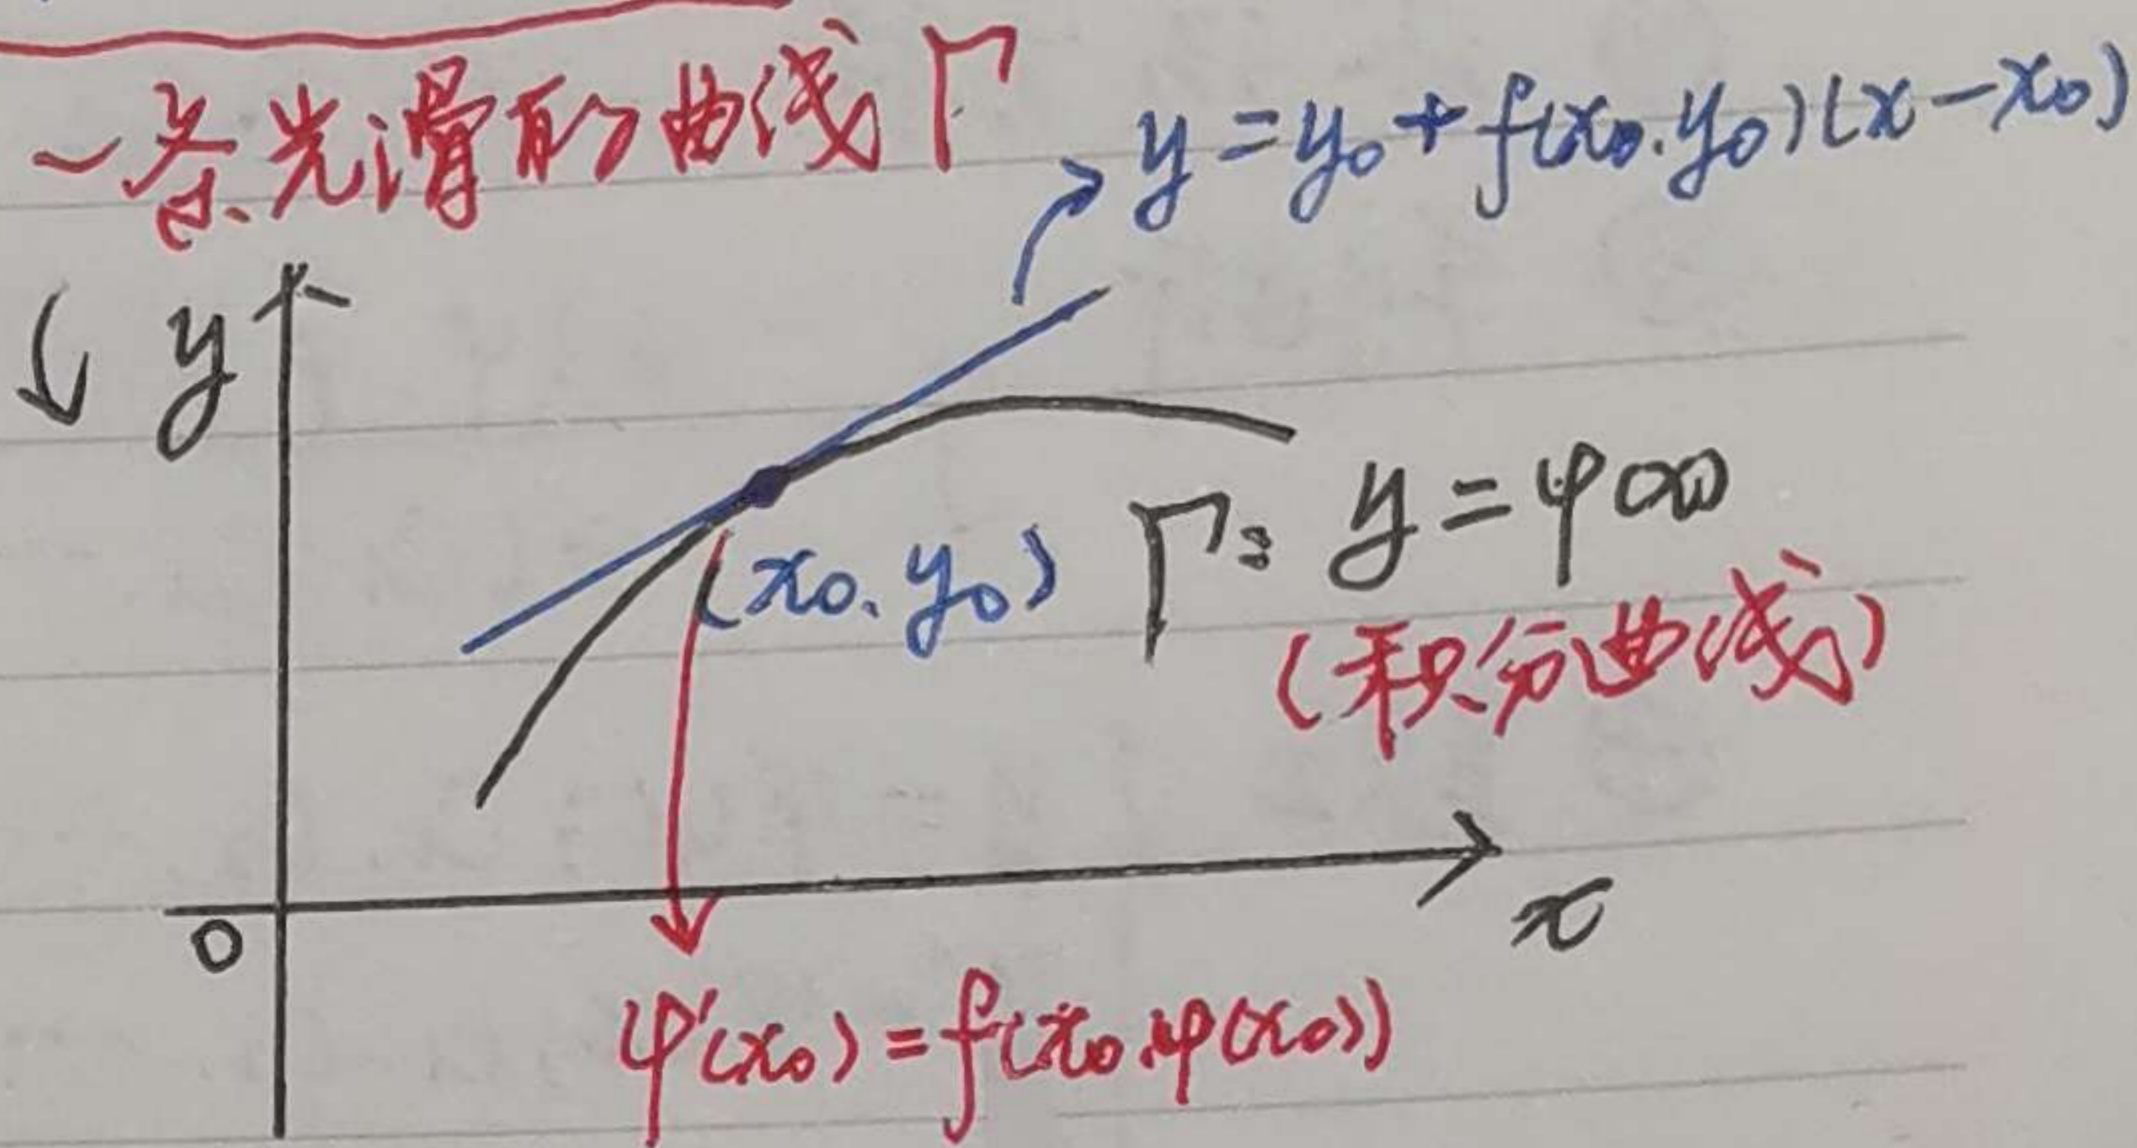 一条光滑的曲线 Γ
y = y₀ + f(x₀.y₀)(x-x₀)
y
(x₀.y₀)
Γ: y = φ(x)
(积分曲线)
0
x
φ'(x₀) = f(x₀.φ(x₀))